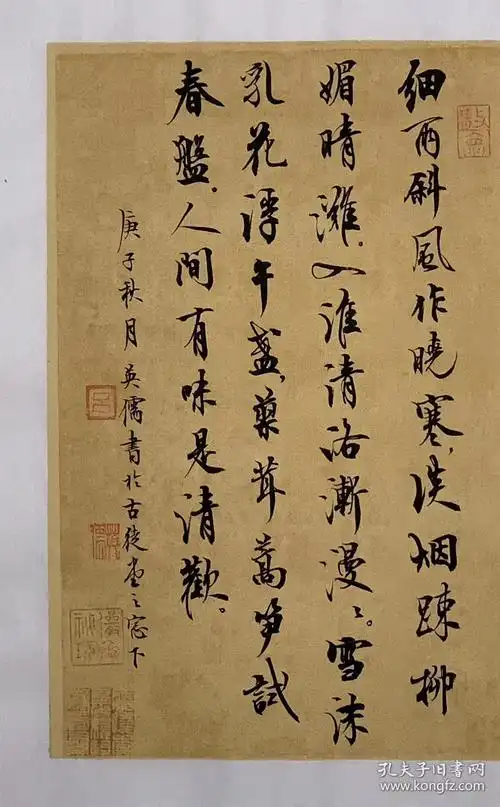 细雨斜风作晓寒，淡烟疎柳
媚晴滩。入淮清洛渐漫〻。雪沫
乳花浮午盏，蓼茸蒿笋试
春盤。人间有味是清歡。
庚子秋月英儒書於古徒堂之窓下
孔夫子旧书网
www.kongfz.com